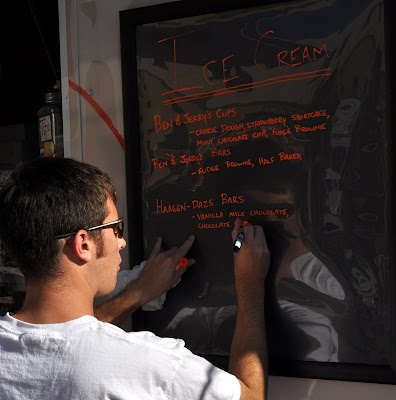 ICE CREAM
BEN & JERRY'S CUPS
- COOKIE DOUGH, STRAWBERRY SHORTCAKE,
MINT CHOCOLATE CHIP, FUDGE BROWNIE
BEN & JERRY'S BARS
- FUDGE BROWNIE, HALF BAKED,
HAAGEN-DAZS BARS
- VANILLA MILK CHOCOLATE,
CHOCOLATE